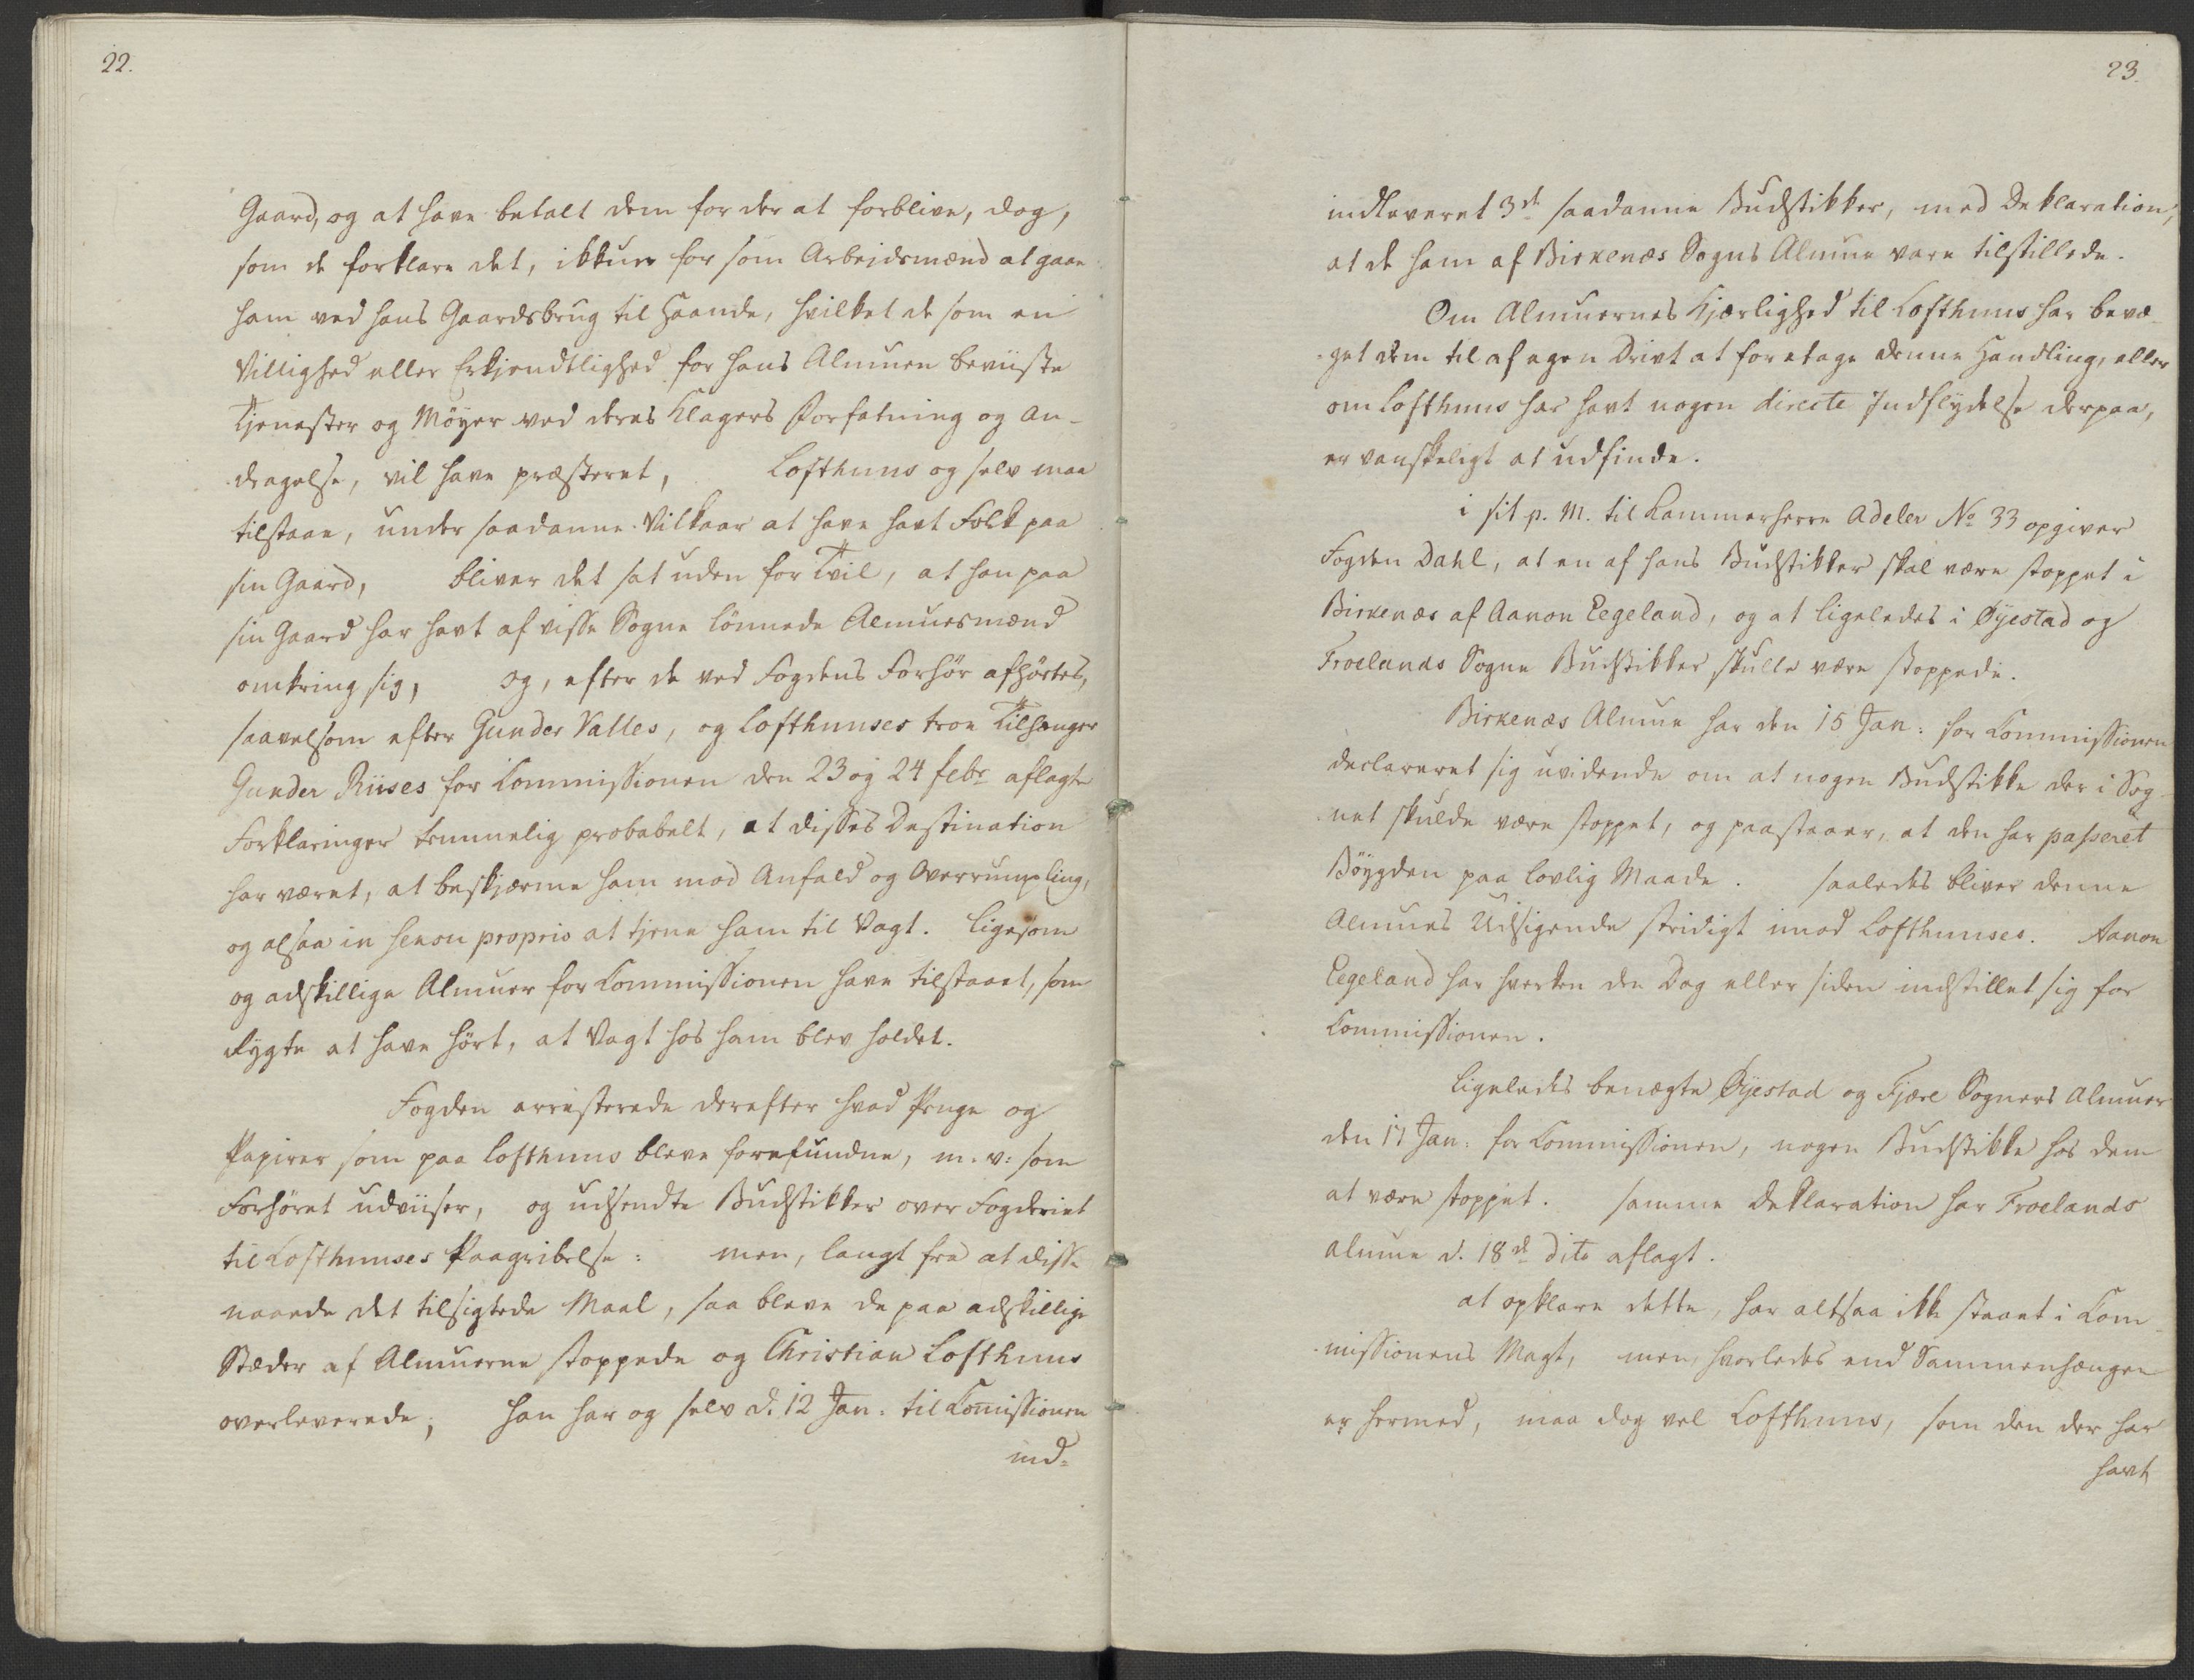 22.
Gaard, og at have betalt dem for der at forblive, dog,
som de forklare det, ikkun for som Arbeidsmænd at gaae
ham ved hans Gaardsbrug til Haande, hvilket de som en
Villighed eller Erkjendtlighed for hans Almuen beviiste
Tjenester og Möyer ved deres Klagers Forfatning og An-
dragelse, vil have præsteret, Lofthuus og selv maae
tilstaae, under saadanne Vilkaar at have havt Folk paa
sin Gaard, bliver det sat uden for Tvil, at han paa
sin Gaard har havt af visse Sogne lönnede Almuesmænd
omkring sig, og, efter de ved Fogdens Forhör afhörtes,
saavelsom efter Gunder Valles, og Lofthuuses troe Tilhænger
Gunder Riises for Commissionen den 23 og 24 febr. aflagte
Forklaringer temmelig probabelt, at disses Destination
har været, at beskjærme ham mod Anfald og Overrumpling,
og alsaa in sensu proprio at tjene ham til Vagt. Ligesom
og adskillige Almuer for Commissionen have tilstaaet, som
Rygte at have hört, at Vagt hos ham blev holdet.
Fogden arresterede derefter hvad Penge og
Papirer som paa Lofthuus bleve forefundne, m. v: som
Forhöret udviiser, og udsendte Budstikker over Fogderiet
til Lofthuuses Paagribelse: men, langt fra at disse
naaede det tilsigtede Maal, saa bleve de paa adskillige
Stæder af Almuerne stoppede og Christian Lofthuus
overleverede; han har og selv d. 12 Jan: til Commissionen
ind-
23.
indleveret 3de saadanne Budstikker, med Deklaration,
at de ham af Birkenæs Sogns Almue vare tilstillede.
Om Almuernes Kjærlighed til Lofthuus har bevæ-
get dem til af egen Drivt at foretage denne Handling, eller
om Lofthuus har havt nogen directe Indflydelse derpaa,
er vanskeligt at udfinde.
i sit p. M. til Kammerherre Adeler No 33 opgiver
Fogden Dahl, at en af hans Budstikker skal være stoppet i
Birkenæs af Aanon Eegeland, og at ligeledes i Öyestad og
Froelands Sogne Budstikker skulle være stoppede.
Birkenæs Almue har den 15 Jan: for Commissionen
declareret sig uvidende om at nogen Budstikke der i Sog-
net skulde være stoppet, og paastaaer, at den har passeret
Böygden paa lovlig Maade. saaledes bliver denne
Almues Udsigende stridigt imod Lofthuuses. Aanon
Eegeland har hverken den Dag eller siden indstillet sig for
Commissionen.
Ligeledes benægte Öyestad og Fjære Sogners Almuer
den 17 Jan: for Commissionen, nogen Budstikke hos dem
at være stoppet. samme Deklaration har Froelands
Almue d. 18de dito aflagt.
at opklare dette, har altsaa ikke staaet i Com-
missionens Magt, men, hvorledes end Sammenhængen
er hermed, maa dog vel Lofthuus, som den der har
havt